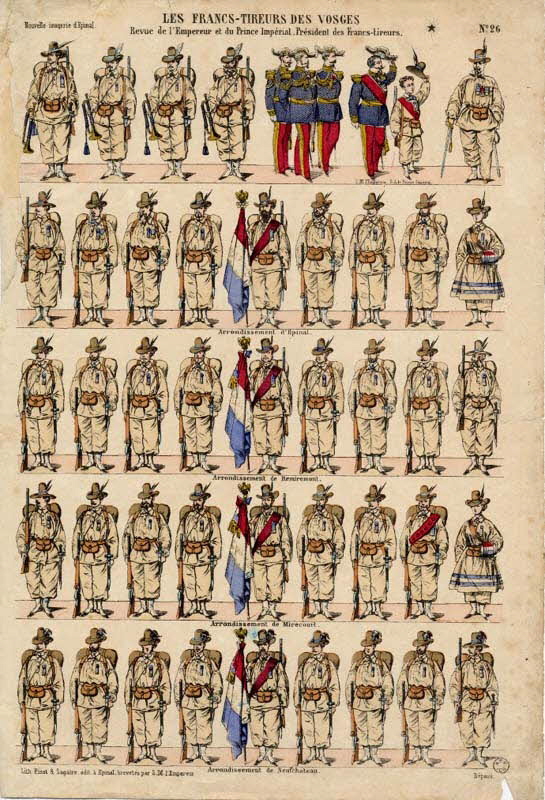 Nouvelle imagerie d'Epinal.
LES FRANCS-TIREURS DES VOSGES
Nº 26
Revue de l'Empereur et du Prince Impérial, Président des Francs-tireurs.
Arrondissement d'Epinal.
Arrondissement de Remiremont.
Arrondissement de Mirecourt.
Arrondissement de Neufchateau.
Lith. Pinot & Sagaire, édit. à Epinal, brevetés par S.M. l'Empereur
Déposé.